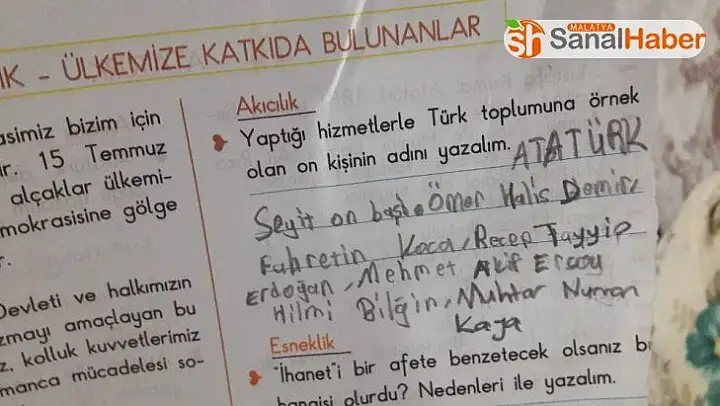 MALATYA
SH SanalHaber
IK - ÜLKEMİZE KATKIDA BULUNANLAR
asimiz bizim için
ır. 15 Temmuz
alçaklar ülkemi-
mokrasisine gölge
r.
Devleti ve halkımızın
zmayı amaçlayan bu
z, kolluk kuvvetlerimiz
manca mücadelesi so-
Akıcılık
Yaptığı hizmetlerle Türk toplumuna örnek
olan on kişinin adını yazalım. ATATÜRK
Seyit on başı. Ömer Halis Demir
Fahretin Koca, Recep Tayyip
Erdoğan, Mehmet Akif Ersoy
Hilmi Bilgin, Muhtar Numan
Kaya
Esneklik
"İhanet"i bir afete benzetecek olsanız bu
hangisi olurdu? Nedenleri ile yazalım.